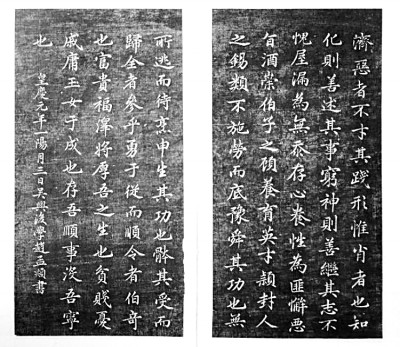 濟惡者不才其踐形惟肖者也知
化則善述其事窮神則善繼其志不
愧屋漏為無忝存心養性為匪懈惡
旨酒崇伯子之顧養育英才潁封人
之錫類不施勞而底豫舜其功也無
所逃而待烹申生其功也骵其受而
歸全者參乎勇于從而順令者伯奇
也富貴福澤將厚吾之生也貧賤憂
戚庸玉女于成也存吾順事沒吾寧
也
皇慶元年一陽月三日吳興後學趙孟頫書